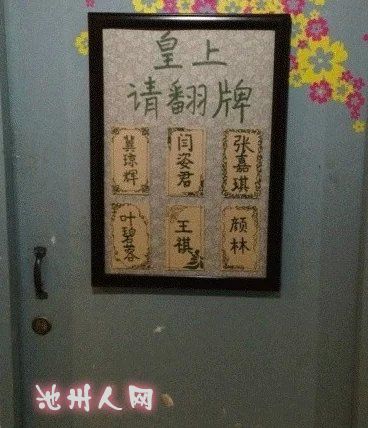 皇上
请翻牌
冀琼辉 闫姿君 张嘉琪
叶碧容 王祺 颜林
池州人网